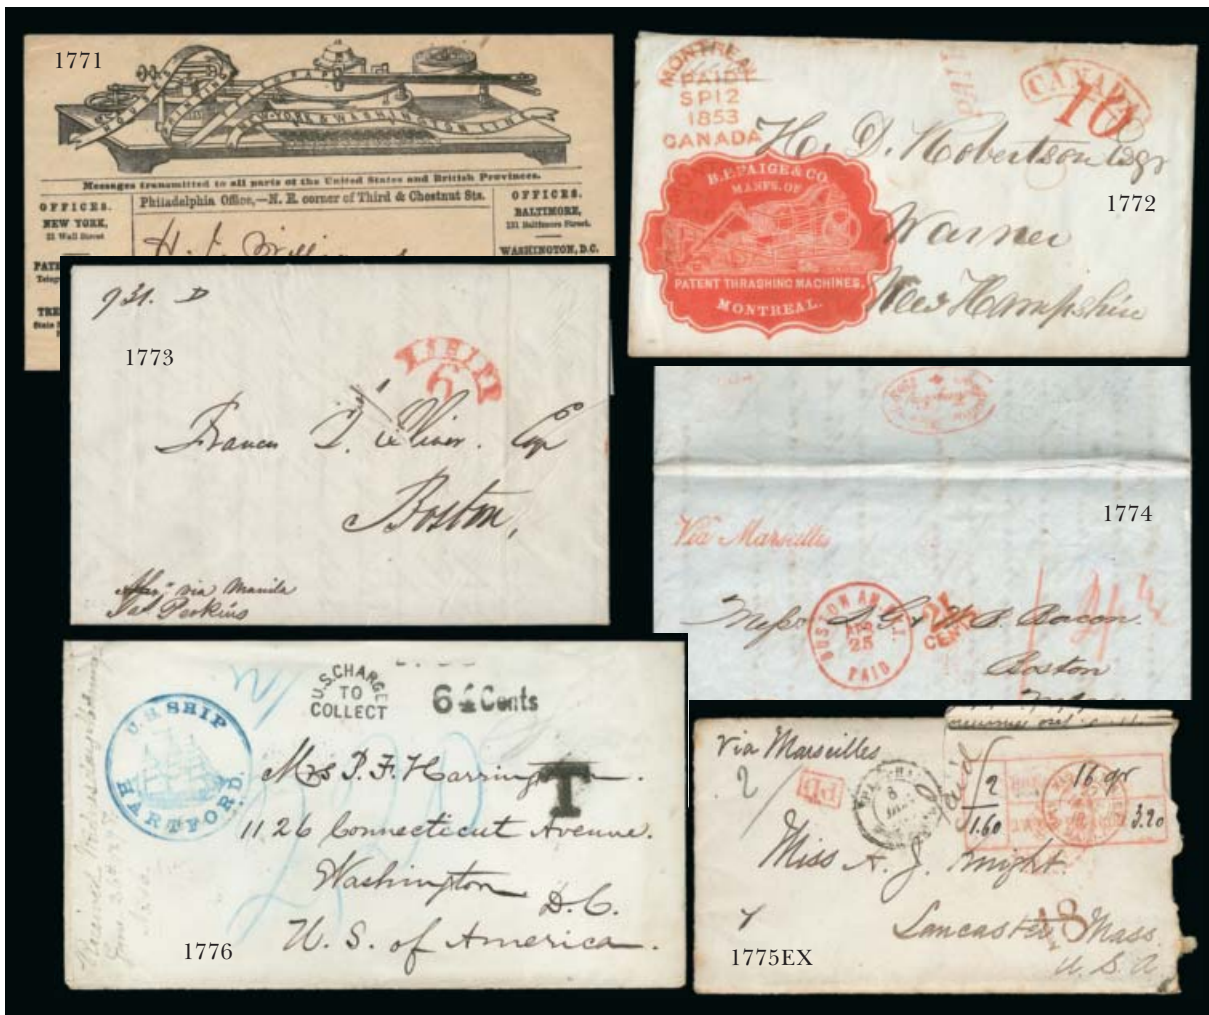 1771
NEW-YORK & WASHINGTON LINE
Messages transmitted to all parts of the United States and British Provinces.
OFFICES.
NEW YORK,
21 Wall Street
Philadelphia Office,—N. E. corner of Third & Chestnut Sts.
OFFICES.
BALTIMORE,
WASHINGTON, D.C.
MONTREAL
PAID
SP 12
1853
CANADA
PAID
CANADA
10
H. D. Robertson Esqr
1772
Warner
New Hampshire
B. P. PAIGE & CO.
MANFS. OF
PATENT THRASHING MACHINES,
MONTREAL.
1773
SHIP
6
Oliver. Esq
Boston,
via Manila
Perkins
1774
Via Marseilles
BOSTON AM. PKT.
APR
25
PAID
CENTS
Messrs D. G. & W. B. Bacon.
Boston
U.S. CHARGE
TO
COLLECT
64 Cents
U.S. SHIP
HARTFORD.
Mrs P. F. Harrington.
T
1126 Connecticut Avenue.
Washington
D.C.
U. S. of America.
1776
Via Marseilles
2
PD
paid
2
1.60
16 gr
3.20
Miss A. J. Knight.
Lancaster, Mass.
U. S. A.
1775EX